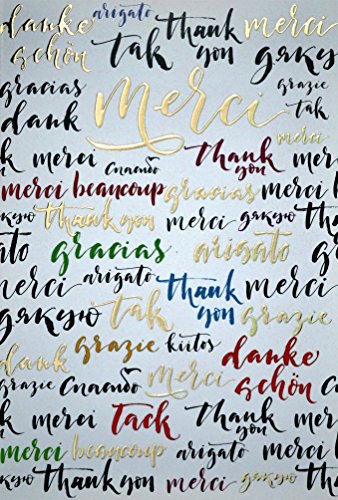 danke schön arigato thank you merci
tak дякую
gracias merci grazie
dank tak
merci
merci Спасибо thank you merci
merci beaucoup gracias merci
дякую thank you merci дякую
gracias arigato
merci arigato thank you merci
дякую tak grazie
dank grazie kiitos danke schön
grazie Спасибо merci
merci Tack thank you
merci beaucoup arigato merci
thank you merci дякую